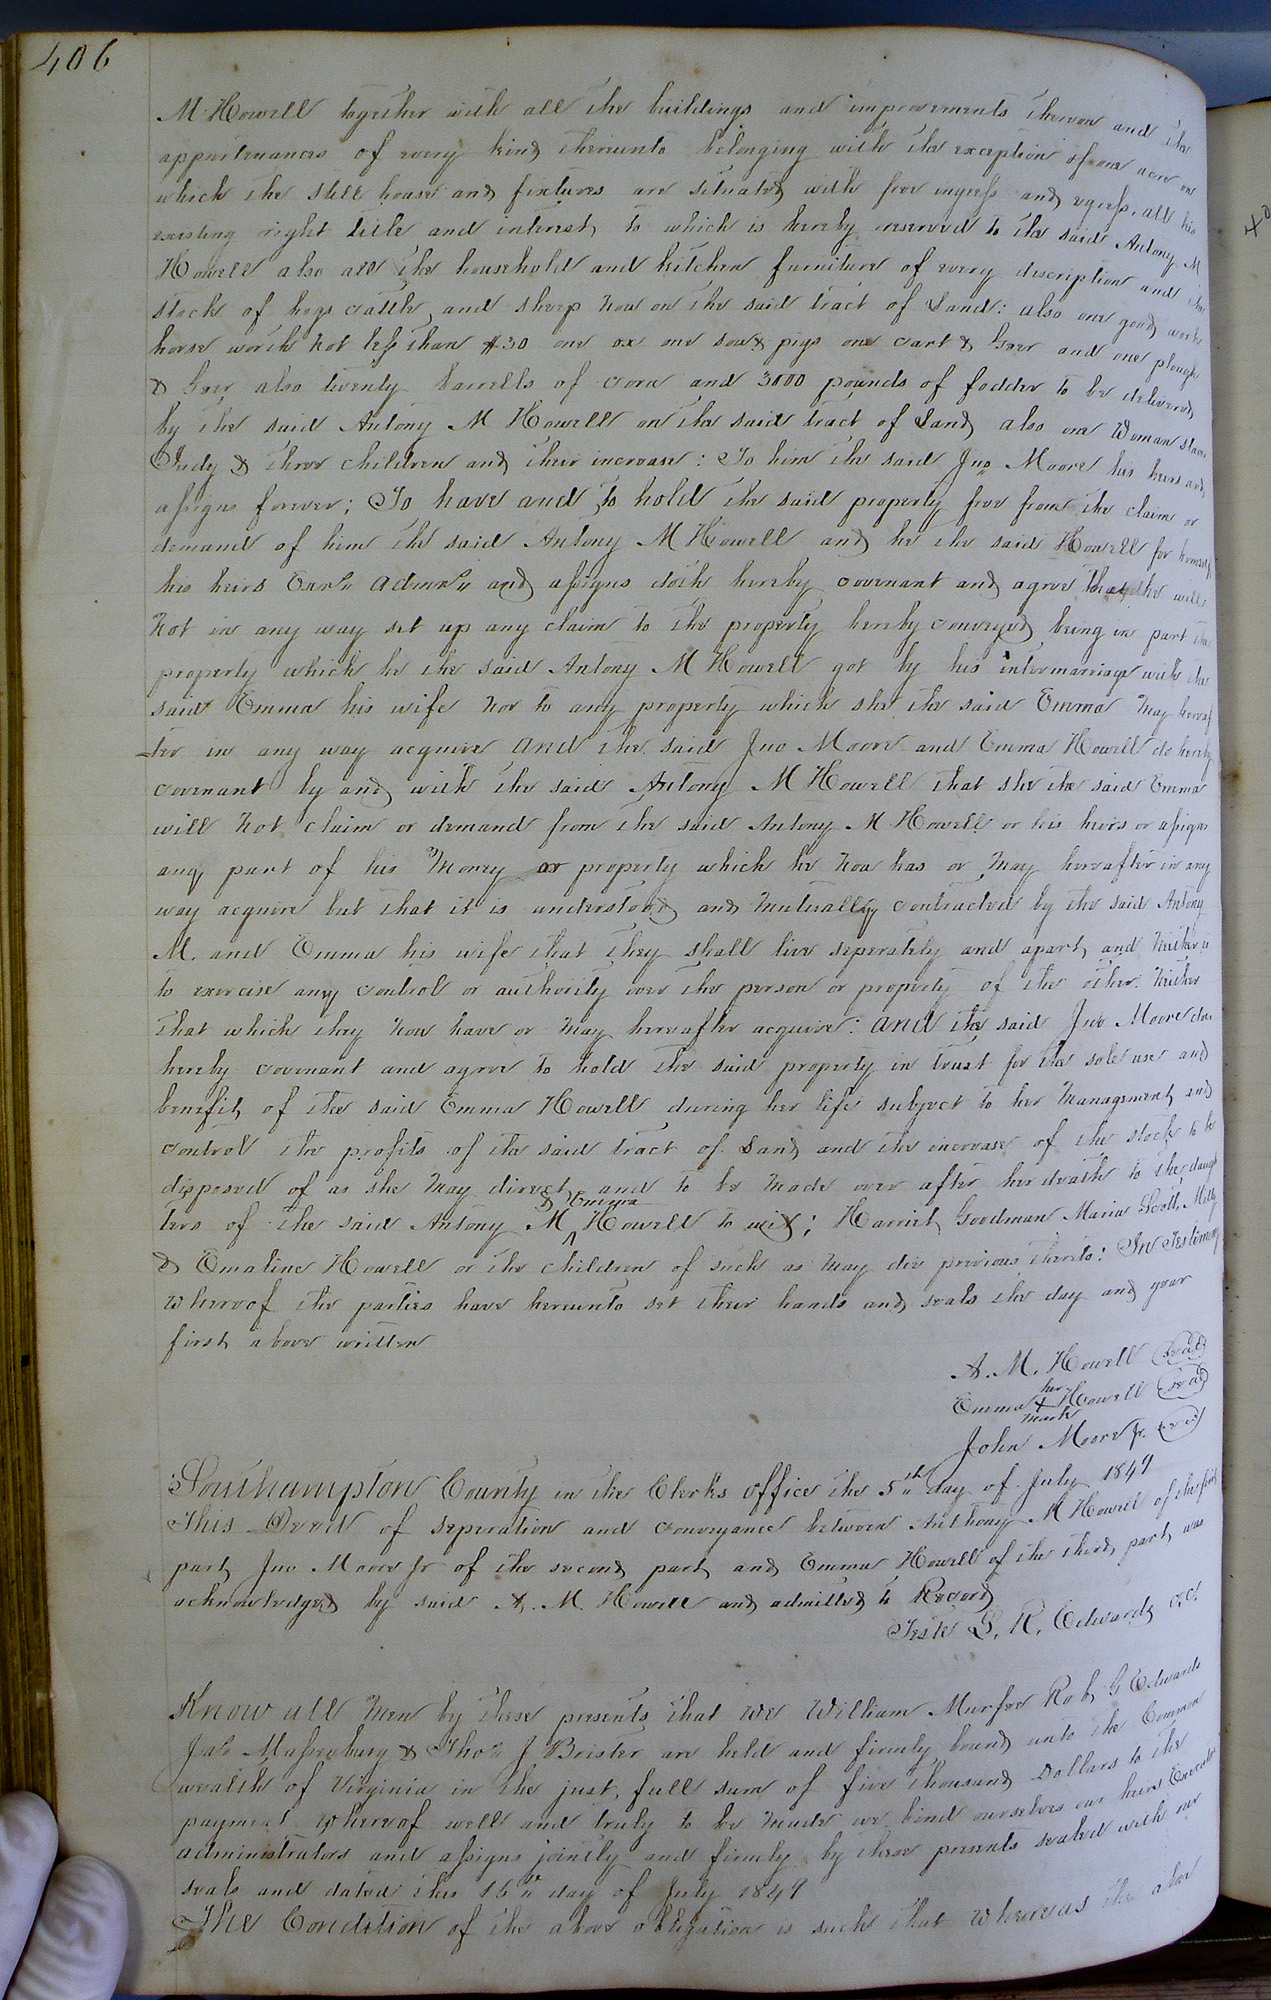 406
M Howell together with all the buildings and improvements thereon and the
appurtenances of every kind thereunto belonging with the exception of one acre on
which the still house and fixtures are situated with free ingress and egress, all his
existing right title and interest, to which is hereby reserved to the said Antony M
Howell also all the household and kitchen furniture of every description and the
stock of hogs cattle and sheep now on the said tract of Land: also one good work
horse worth not less than $30 one ox one sow & pigs one cart & Gear and one plough
& Gear also twenty barrells of corn and 3000 pounds of fodder to be delivered
by the said Antony M Howell on the said tract of Land also one Woman slave
Judy & three children and their increase: To him the said Jno Moore his heirs and
assigns forever; To have and to hold the said property free from the claim or
demand of him the said Antony M Howell and he the said Howell for himself
his heirs Exrs admrs and assigns doth hereby covenant and agree that he will
not in any way set up any claim to the property hereby conveyed being in part the
property which he the said Antony M Howell got by his intermarriage with the
said Emma his wife nor to any property which she the said Emma may hereaf
ter in any way acquire and the said Jno Moore and Emma Howell do hereby
covenant by and with the said Antony M Howell that she the said Emma
will not claim or demand from the said Antony M Howell or his heirs or assigns
any part of his Money or property which he now has or may hereafter in any
way acquire but that it is understood and mutually contracted by the said Antony
M. and Emma his wife that they shall live seperately and apart, and neither is
to exercise any control or authority over the person or property of the other. neither
that which they now have or may hereafter acquire: and the said Jno Moore does
hereby covenant and agree to hold the said property in trust for the sole use and
benefit of the said Emma Howell during her life subject to her management and
control the profits of the said tract of Land and the increase of the stock to be
disposed of as she may direct, and to be made over after her death to the daugh
& Emma
ters of the said Antony M Howell to wit; Harriet Goodman Maria Scott, Milly
& Emaline Howell or the children of such as may die previous thereto: In Testimony
whereof the parties have hereunto set their hands and seals the day and year
first above written
A. M. Howell (seal)
her
Emma + Howell (seal)
mark
John Moore Jr. (seal)
Southampton County in the Clerks office the 5th day of July 1847
This Deed of seperation and conveyance between Anthony M Howell of the first
part, Jno Moore Jr of the second part and Emma Howell of the third part, was
acknowledged by said A. M. Howell and admitted to Record
Teste L. R. Edwards c.c.
Know all Men by these presents that we William Murfee Rob G Edwards
Jas Massenburg & Thos J Brister are held and firmly bound unto the Common
wealth of Virginia in the just, full sum of five thousand Dollars to the
payment whereof well and truly to be made we bind ourselves our heirs Executors
administrators and assigns jointly and firmly by these presents sealed with our
seals and dated this 16th day of July 1847
The Condition of the above obligation is such that whereas the above